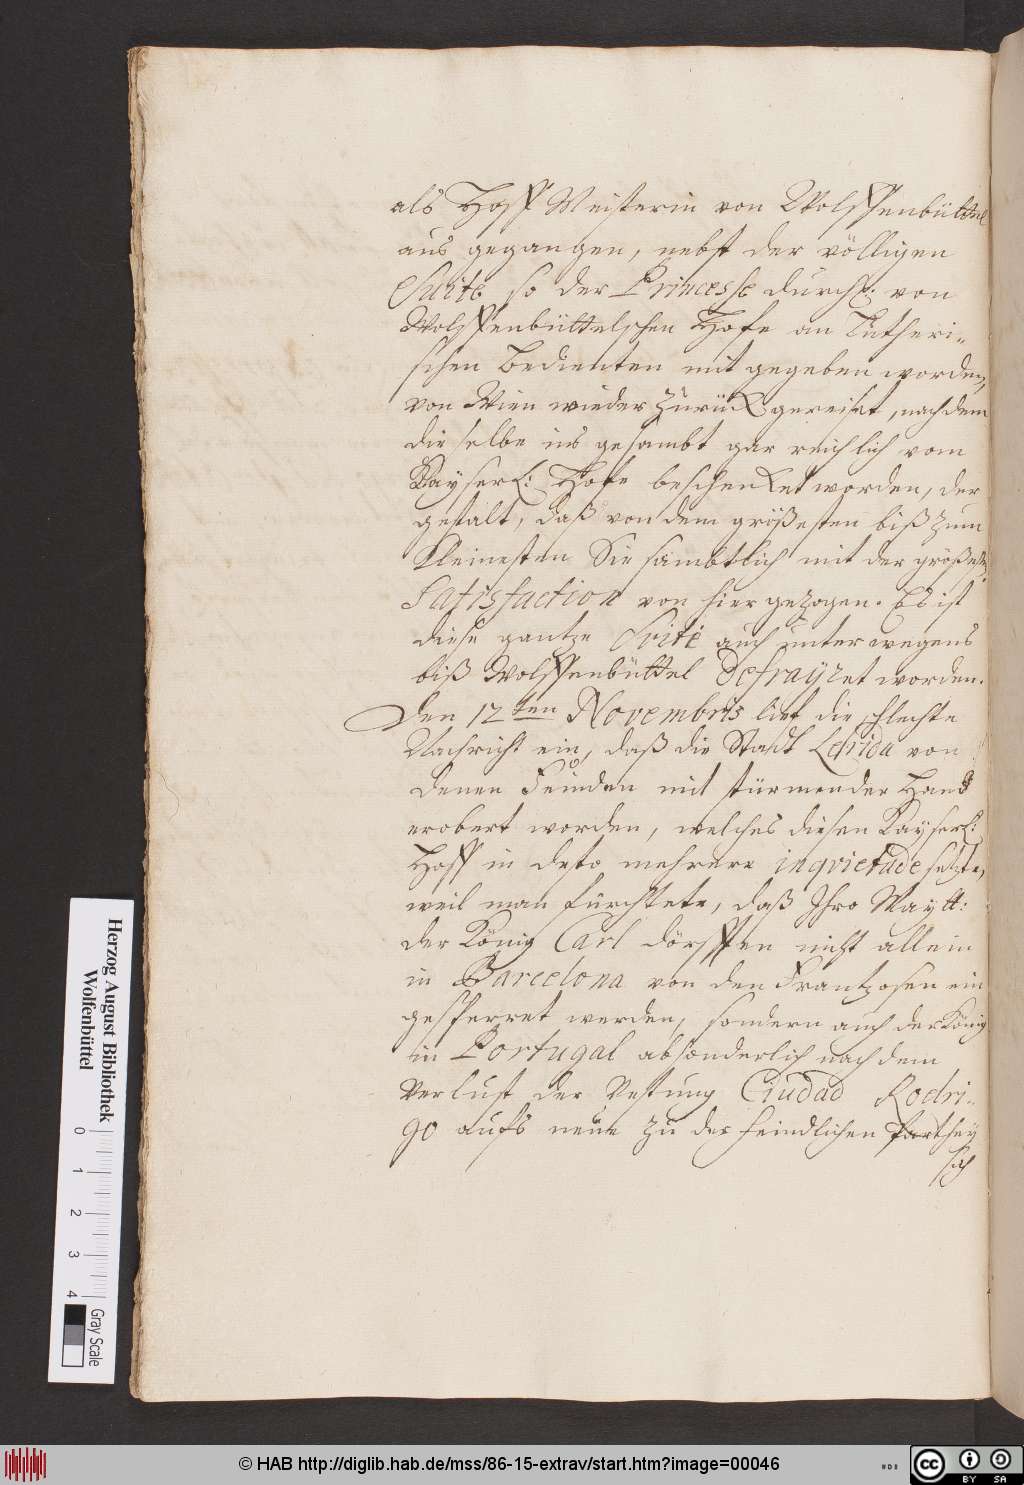 als Hoff Meisterin von Wolffenbüttel
aus gegangen, nebst der völligen
Suite so der Princesse durchl: von
Wolffenbüttelschen Hofe an Lutheri-
schen Bedienten mit gegeben worden,
von Wien wieder zurück gereiset, nach dem
die selbe ins gesambt gar reichlich vom
Kayserl: Hofe beschencket worden, der
gestalt, daß von dem größesten biß zum
Kleinesten Sie sämbtlich mit der größesten
Satisfaction von hier gezogen. Es ist
diese gantze Svite auch unterwegens
biß Wolffenbüttel Defrayret worden.
Den 12ten Novembris lief die schlechte
Nachricht ein, daß die Stadt Lerida von
denen Feinden mit stürmender Hand
erobert worden, welches diesen Kayserl:
Hoff in desto mehrere inqvietude setzte,
weil man fürchtete, daß Ihro Maytt:
der König Carl dörfften nicht allein
in Barcelona von den Frantzosen ein
gesperret werden, sondern auch der König
in Portugal absonderlich nach dem
Verlust der Vestung Ciudad Rodri-
go aufs neue zu der feindlichen Parthey
sich
Herzog August Bibliothek
Wolfenbüttel
0 1 2 3 4
Gray Scale
© HAB http://diglib.hab.de/mss/86-15-extrav/start.htm?image=00046
cc BY SA